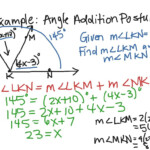 Example: Angle Addition Postu
K
145°
(4x-3)°
K
N
Given m∠LKN
Find m∠LKM a
m∠MKN
∠LKN = m∠LKM + m∠MK
145° = (2x+10)° + (4x-3)°
145 = 2x+10 + 4x-3
145 = 6x+7
23 = x
m∠LKM = 2(
= 5
m∠MKN = 4(